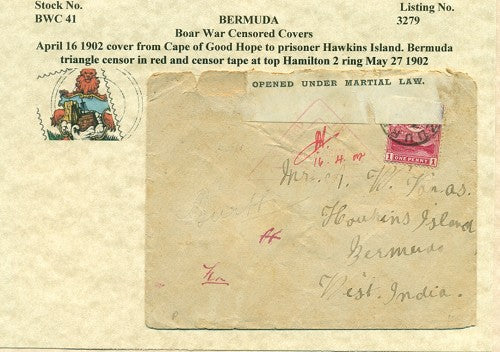 Stock No.
BWC 41
BERMUDA
Listing No.
3279
Boar War Censored Covers
April 16 1902 cover from Cape of Good Hope to prisoner Hawkins Island. Bermuda
triangle censor in red and censor tape at top Hamilton 2 ring May 27 1902
OPENED UNDER MARTIAL LAW.
16. 4. 02
1 ONE PENNY 1
W.
Howkins Island
Bermuda
West. India.